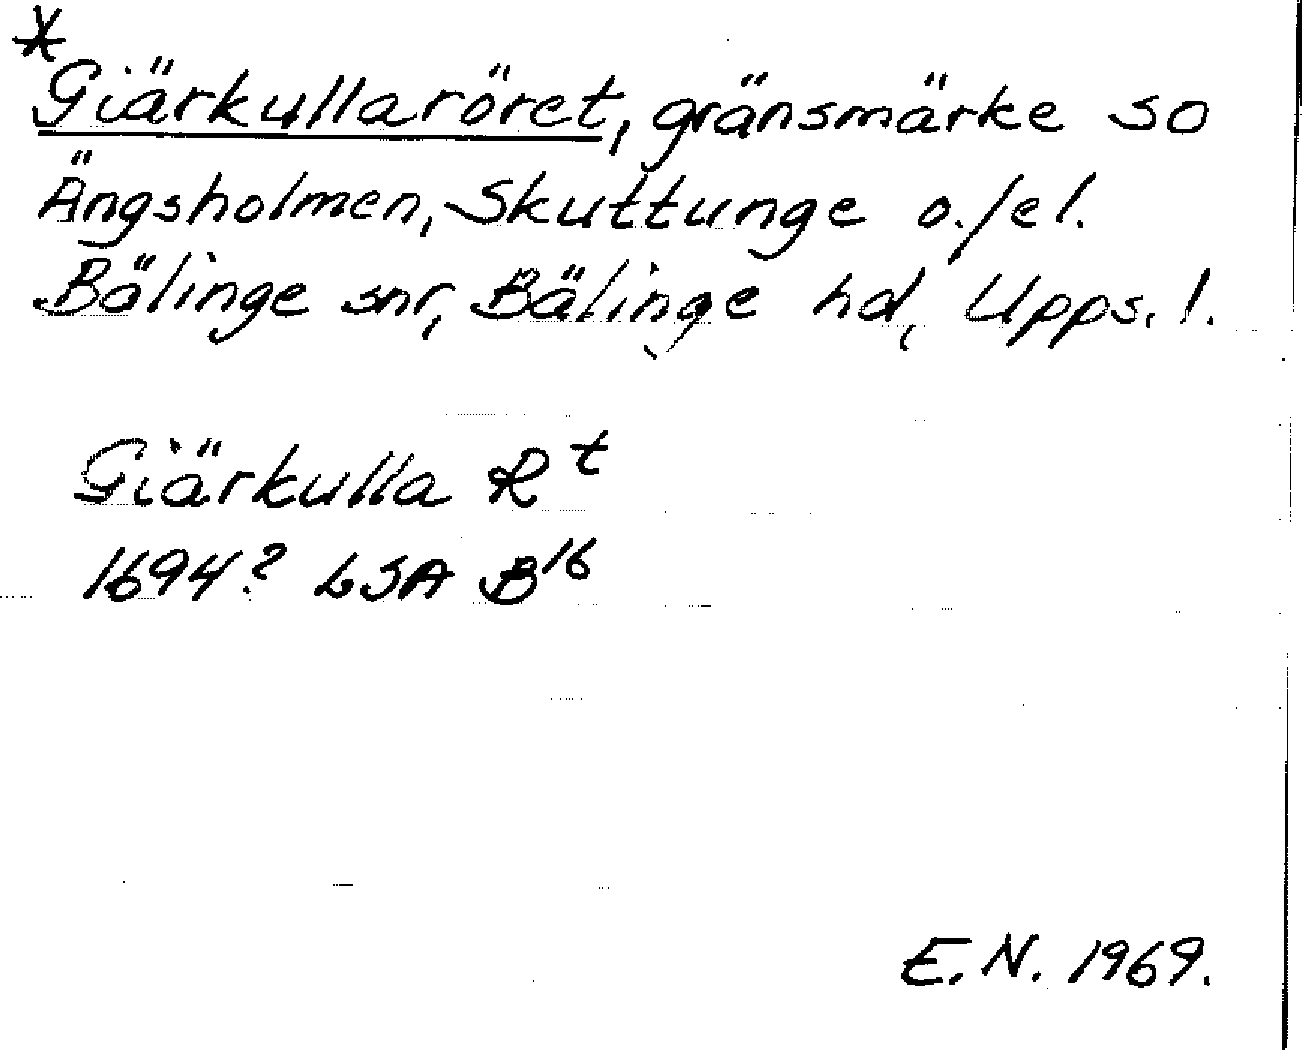 *
Giärkullaröret, gränsmärke SO
Ängsholmen, Skuttunge o./el.
Bälinge snr, Bälinge hd, Upps. l.
Giärkulla Rt
1694? LSA B16
E.N. 1969.